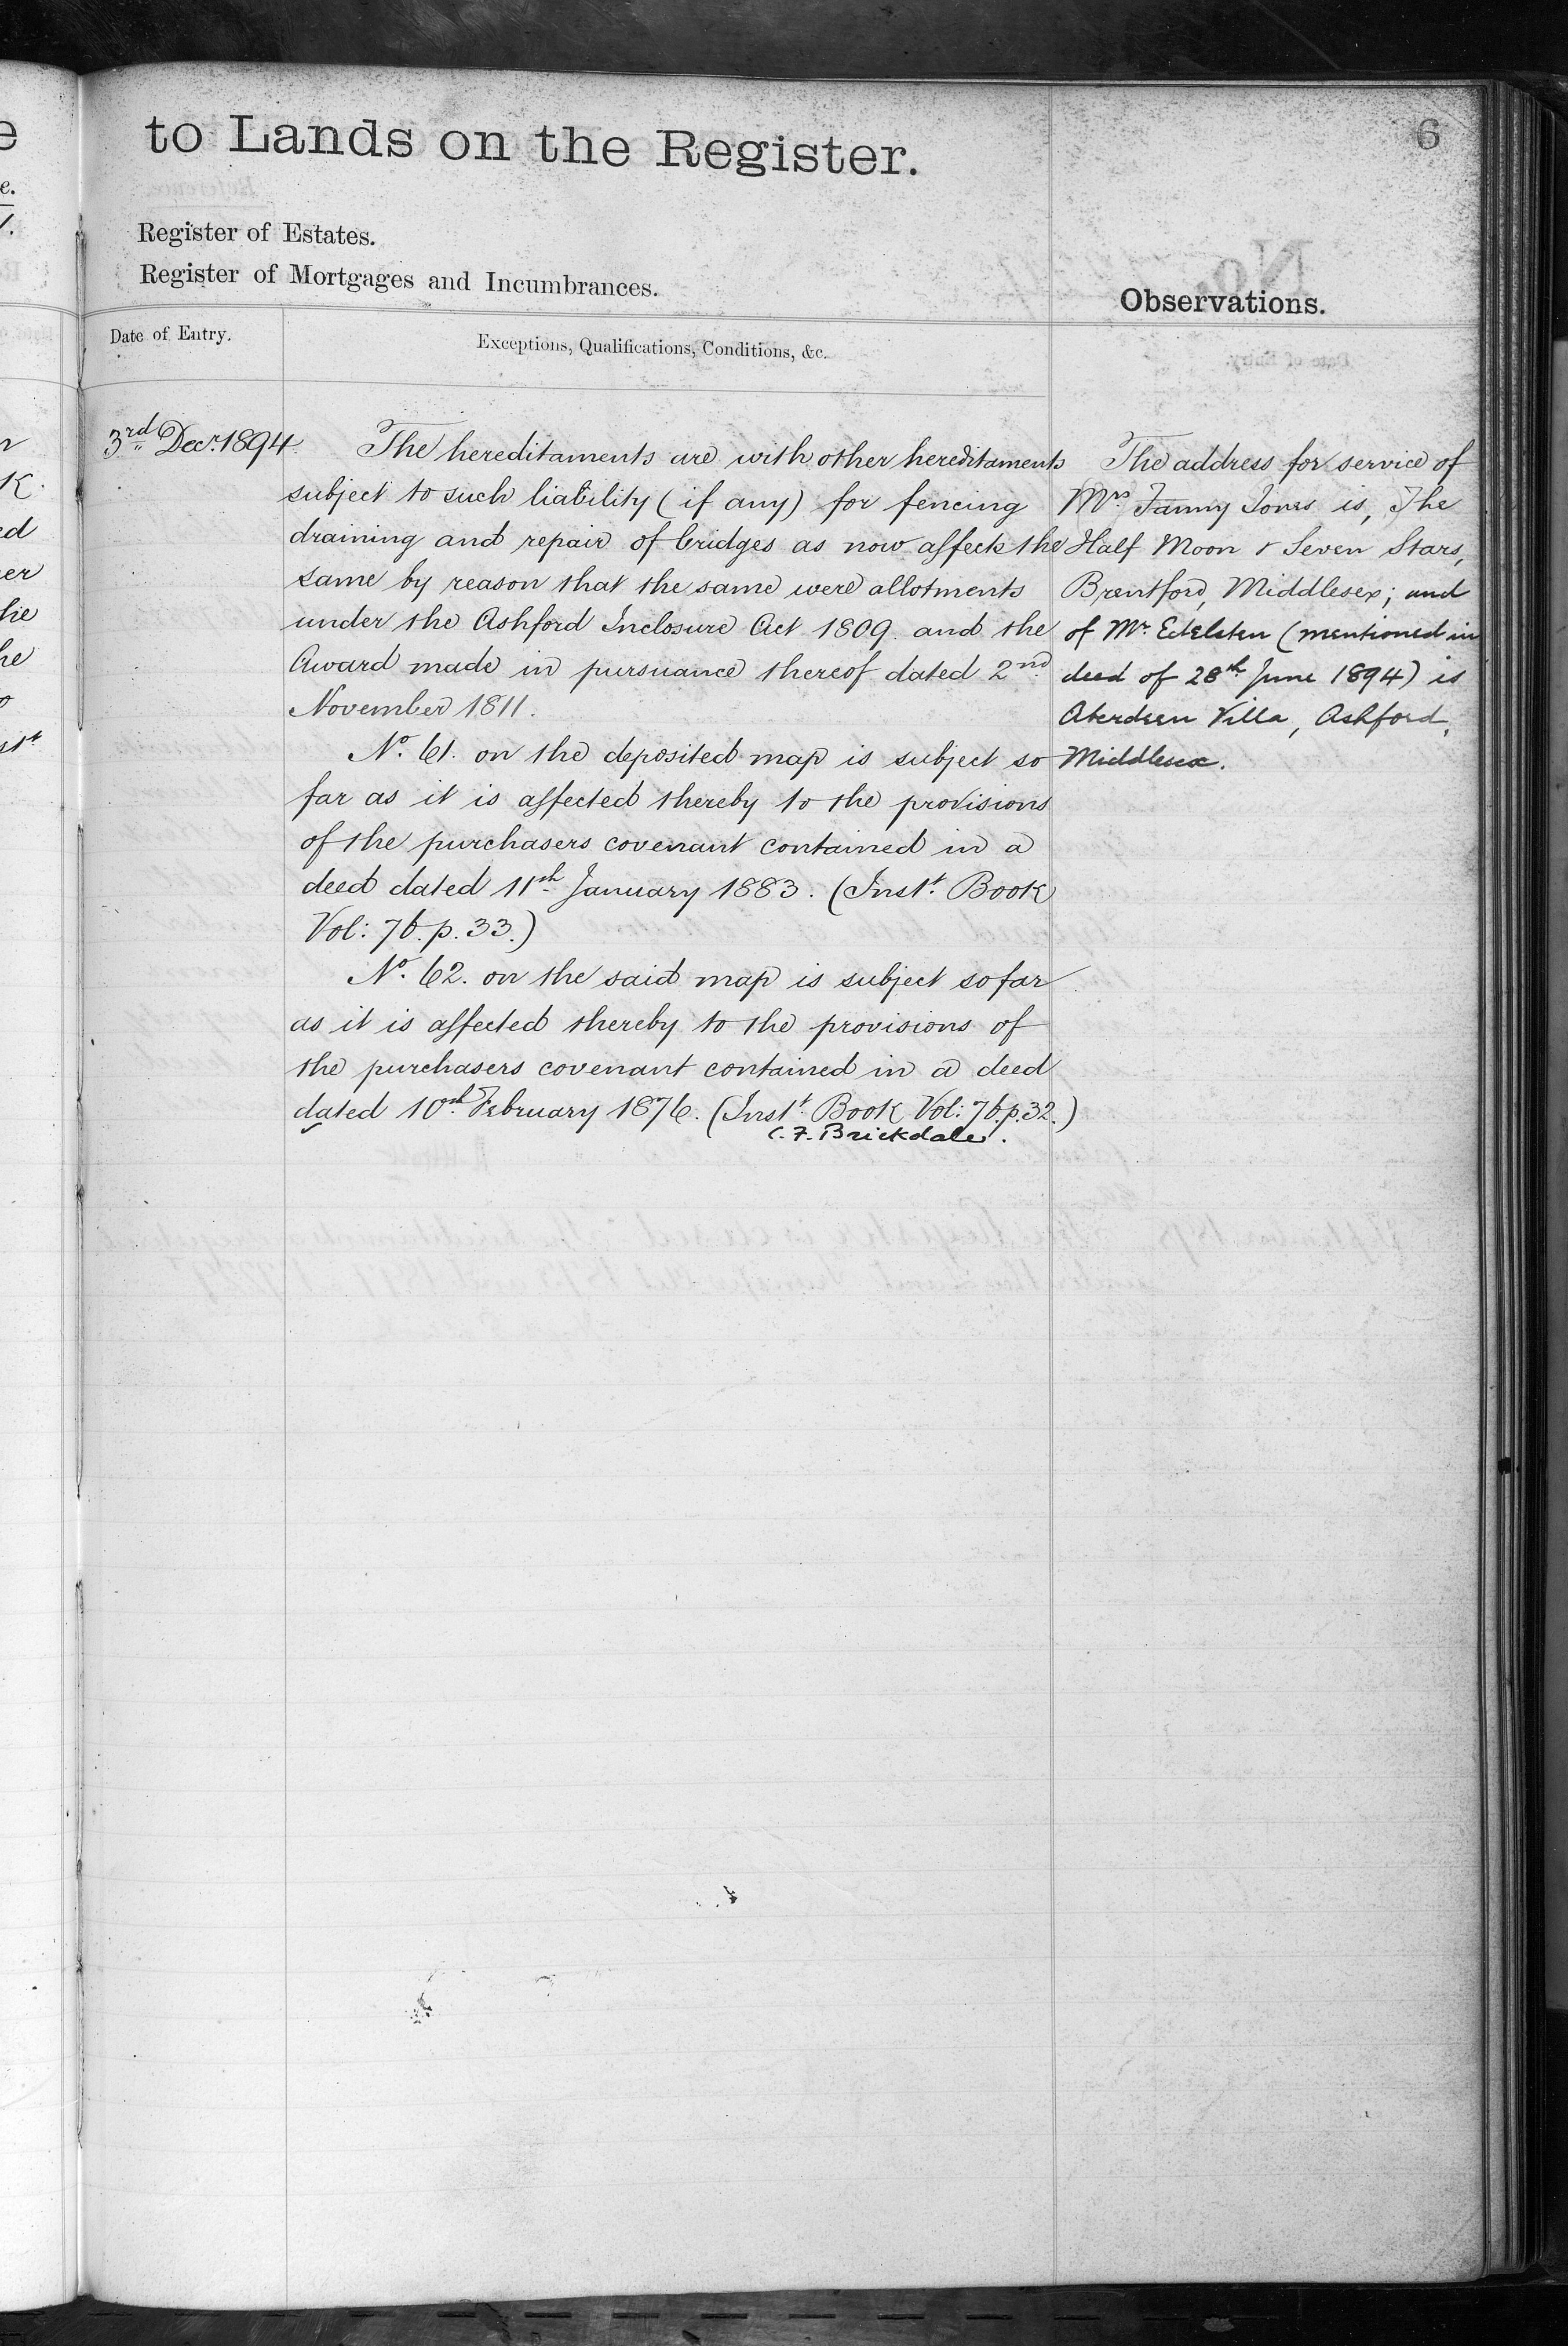 to Lands on the Register.
6
Register of Estates.
Register of Mortgages and Incumbrances.
Observations.
Date of Entry.
Exceptions, Qualifications, Conditions, &c.
3rd Decr. 1894.
The hereditaments are with other hereditaments
subject to such liability (if any) for fencing
draining and repair of bridges as now affects the
same by reason that the same were allotments
under the Ashford Inclosure Act 1809. and the
Award made in pursuance thereof dated 2nd
November 1811.
No. 61. on the deposited map is subject so
far as it is affected thereby to the provisions
of the purchasers covenant contained in a
deed dated 11th January 1883. (Instt. Book
Vol: 76. p. 33.)
No. 62. on the said map is subject so far
as it is affected thereby to the provisions of
the purchasers covenant contained in a deed
dated 10th February 1876. (Instt. Book Vol: 76. p. 32.)
C. F. Brickdale.
The address for service of
Mrs. Fanny Jones is, The
Half Moon & Seven Stars,
Brentford, Middlesex; and
of Mr. Edelsten (mentioned in
deed of 28th June 1894) is
Aberdeen Villa, Ashford,
Middlesex.